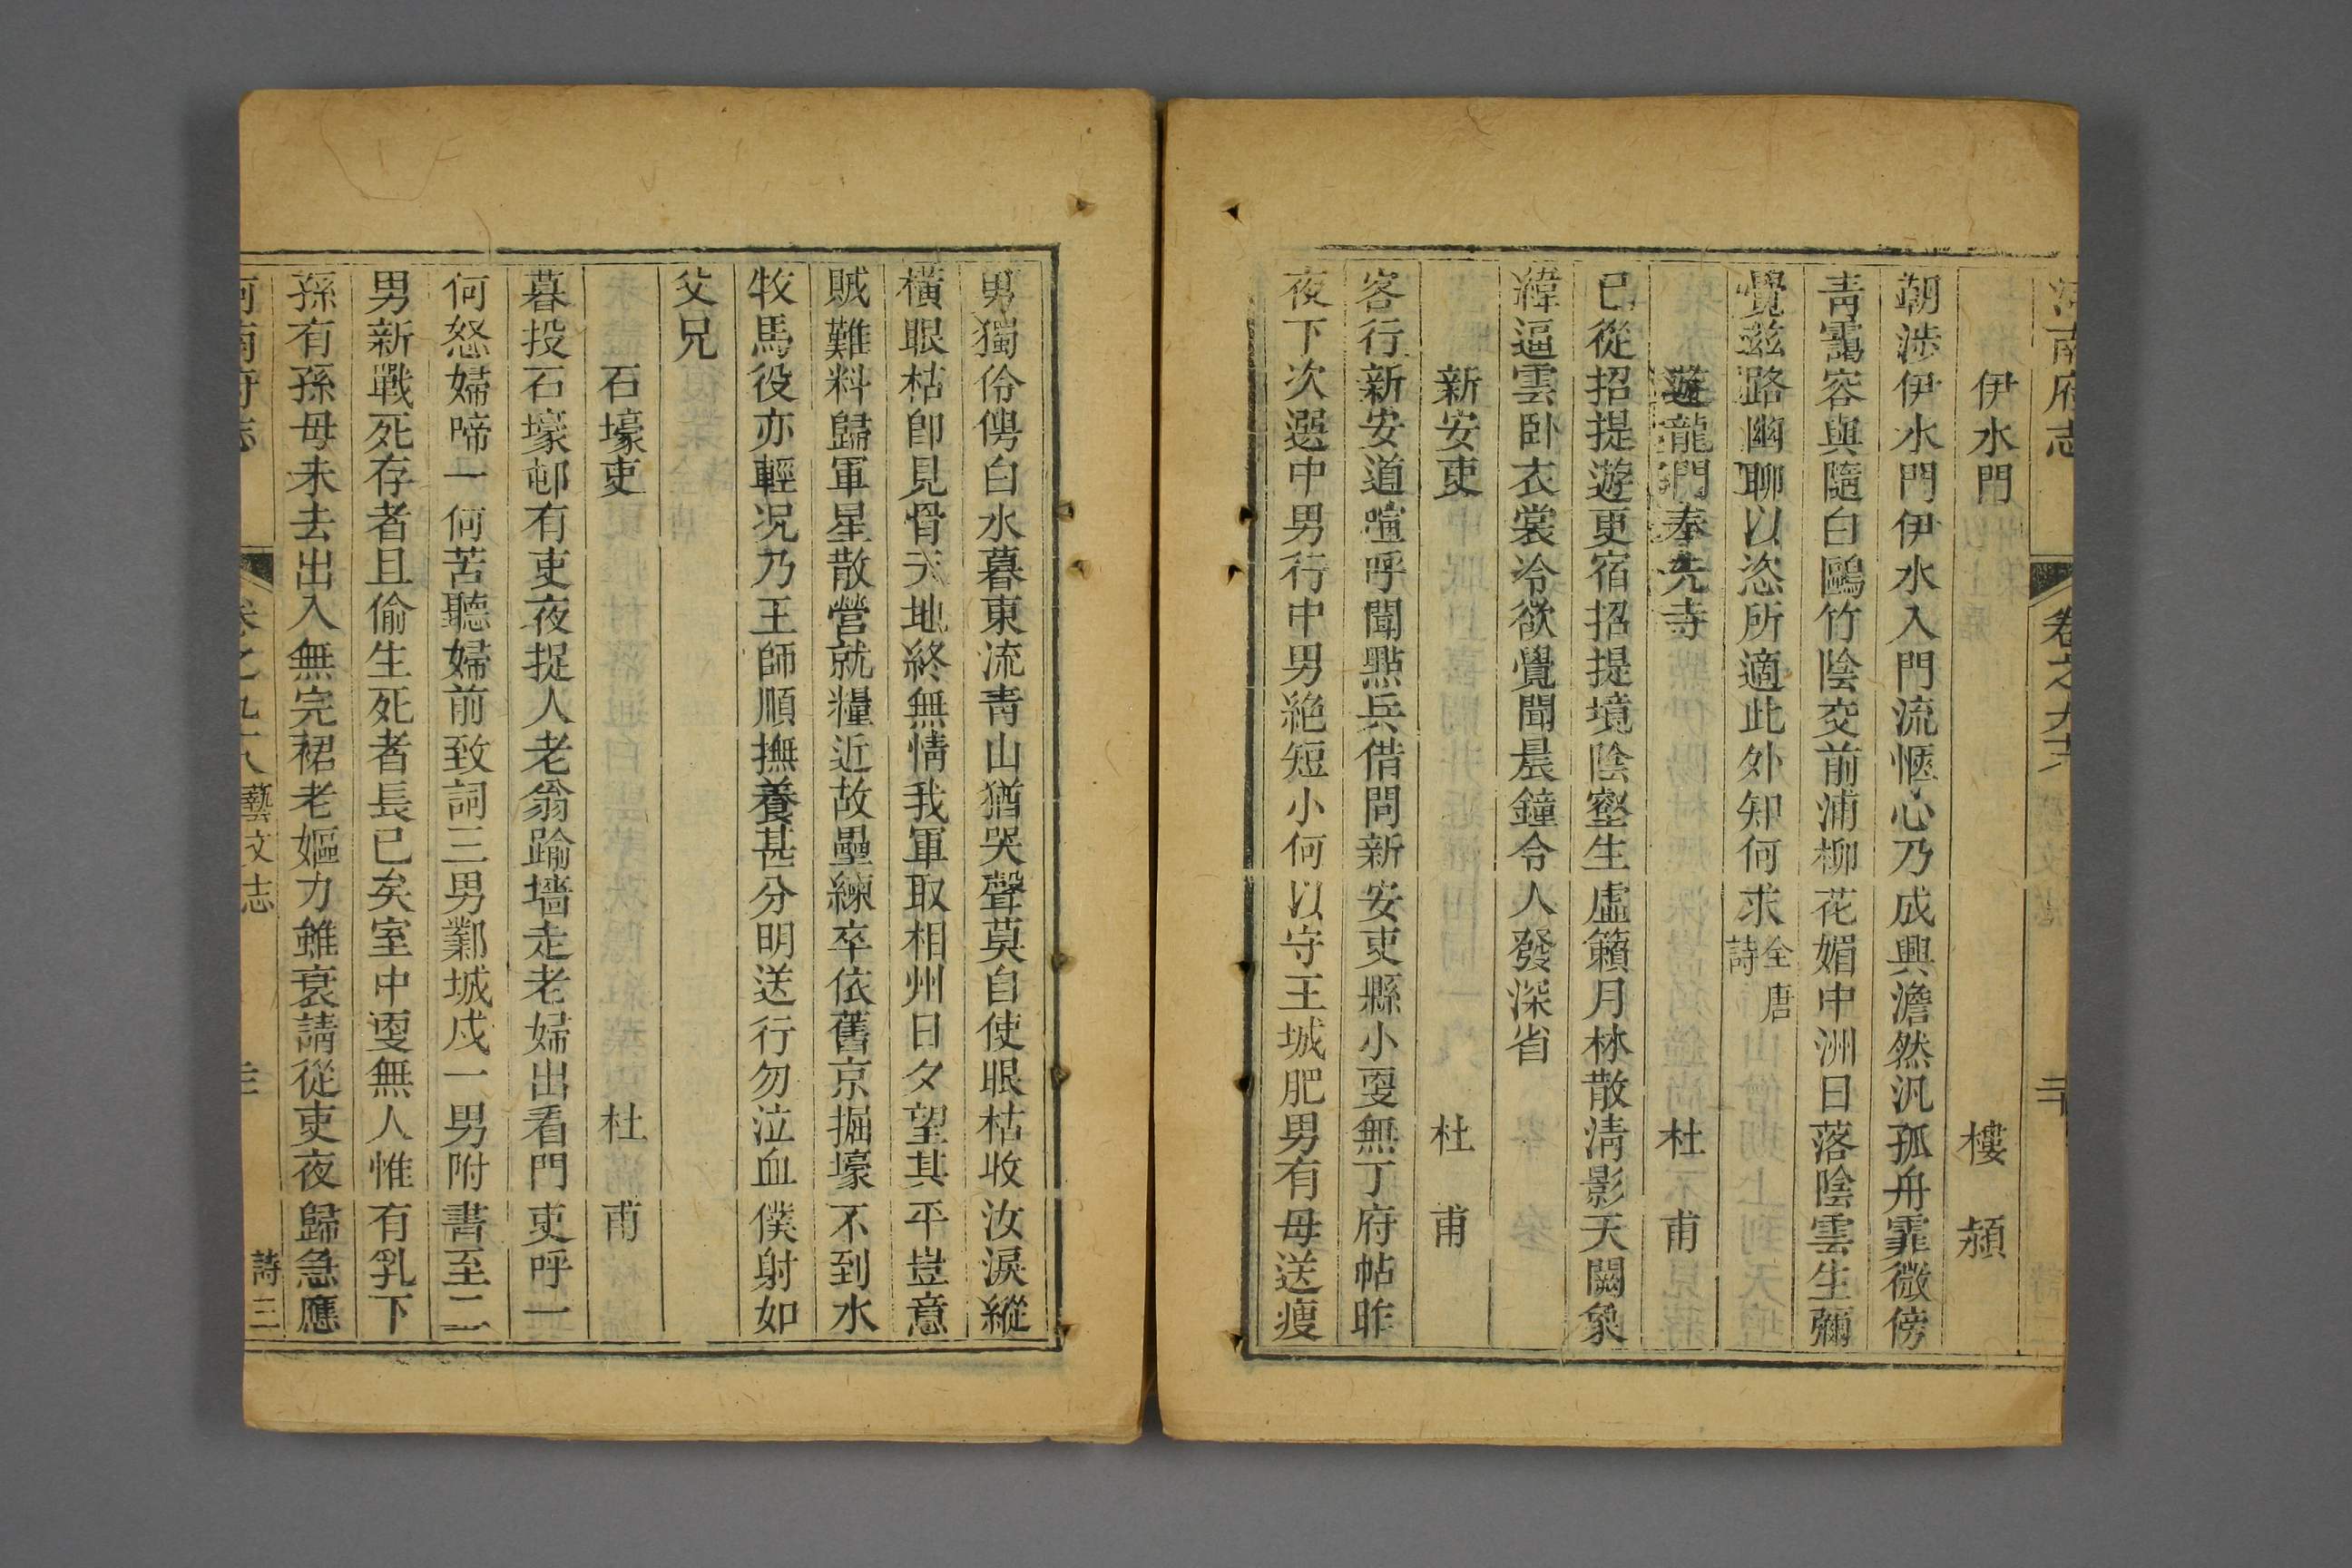 河南府志 卷之九十八
伊水門 樓潁
朝涉伊水門伊水入門流愜心乃成興澹然汎孤舟霏微傍
青靄容與隨白鷗竹陰交前浦柳花媚中洲日落陰雲生彌
覺茲路幽聊以恣所適此外知何求全唐詩
遊龍門奉先寺 杜甫
已從招提遊更宿招提境陰壑生虛籟月林散清影天闕象
緯逼雲卧衣裳冷欲覺聞晨鐘令人發深省
新安吏 杜甫
客行新安道喧呼聞點兵借問新安吏縣小更無丁府帖昨
夜下次選中男行中男絶短小何以守王城肥男有母送瘦
男獨伶俜白水暮東流青山猶哭聲莫自使眼枯收汝淚縱
橫眼枯卽見骨天地終無情我軍取相州日夕望其平豈意
賊難料歸軍星散營就糧近故壘練卒依舊京掘壕不到水
牧馬役亦輕况乃王師順撫養甚分明送行勿泣血僕射如
父兄
石壕吏 杜甫
暮投石壕邨有吏夜捉人老翁踰墻走老婦出看門吏呼一
何怒婦啼一何苦聽婦前致詞三男鄴城戍一男附書至二
男新戰死存者且偷生死者長已矣室中更無人惟有乳下
孫有孫母未去出入無完裙老嫗力雖衰請從吏夜歸急應
河南府志 卷之九十八 藝文志 詩三